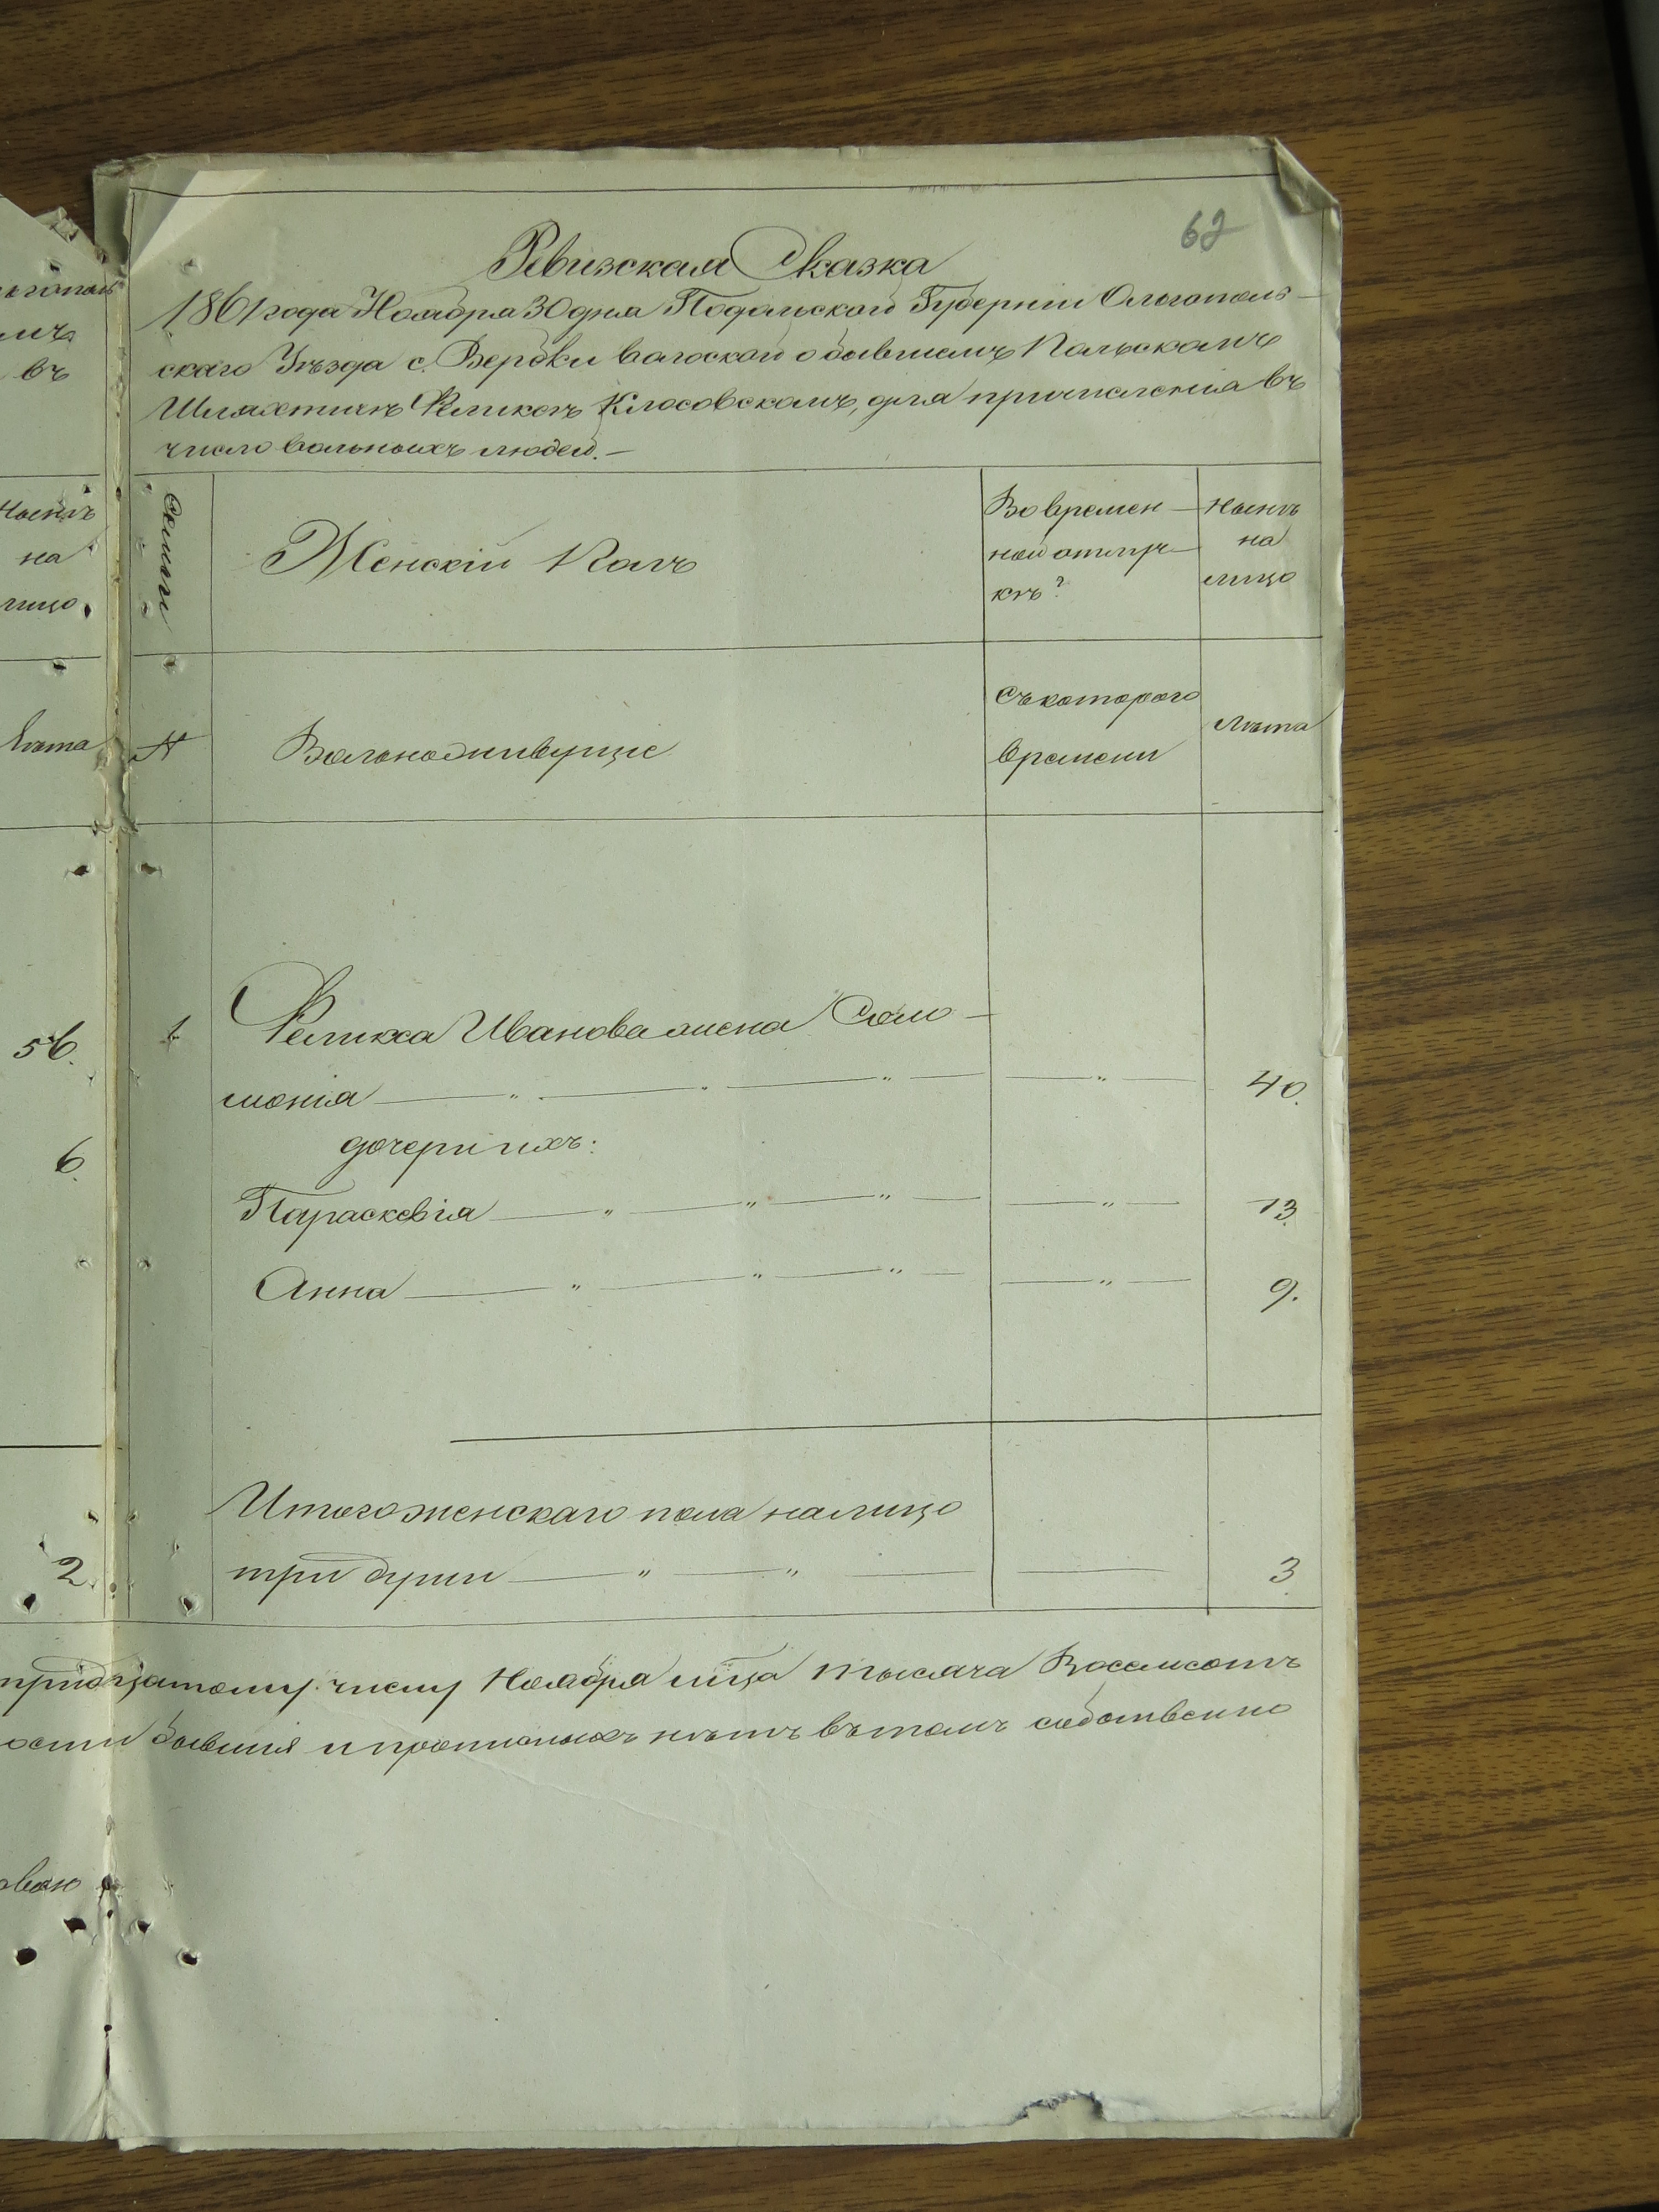 62
Ревизская Сказка
1861 года Ноября 30 дня Подольской Губернии Ольгополь-
скаго Уѣзда с. Вербки волоской о бывшемъ Польскомъ
Шляхтичѣ Феликсѣ Клосовскомъ, для причисленія въ
число вольныхъ людей.—
Ноенѣ
на
лицо
Семьи
Женскій Полъ
Во времен-
ной отлуч-
кѣ?
Ноенѣ
на
лицо
Лѣта
№
Вольноживущіе
Съ котораго
времени
Лѣта
56.
1
Феликса Иванова жена Соло-
монія — " — " — " — " — 40.
6.
дочери ихъ:
Параскевія — " — " — " — " — 13.
Анна — " — " — " — " — 9.
Итого женскаго пола на лицо
2.
три души — " — " — 3
тридцатому числу Ноября мца тысяча Восемсотъ
бывшія и прописныхъ нѣтъ въ томъ собственно